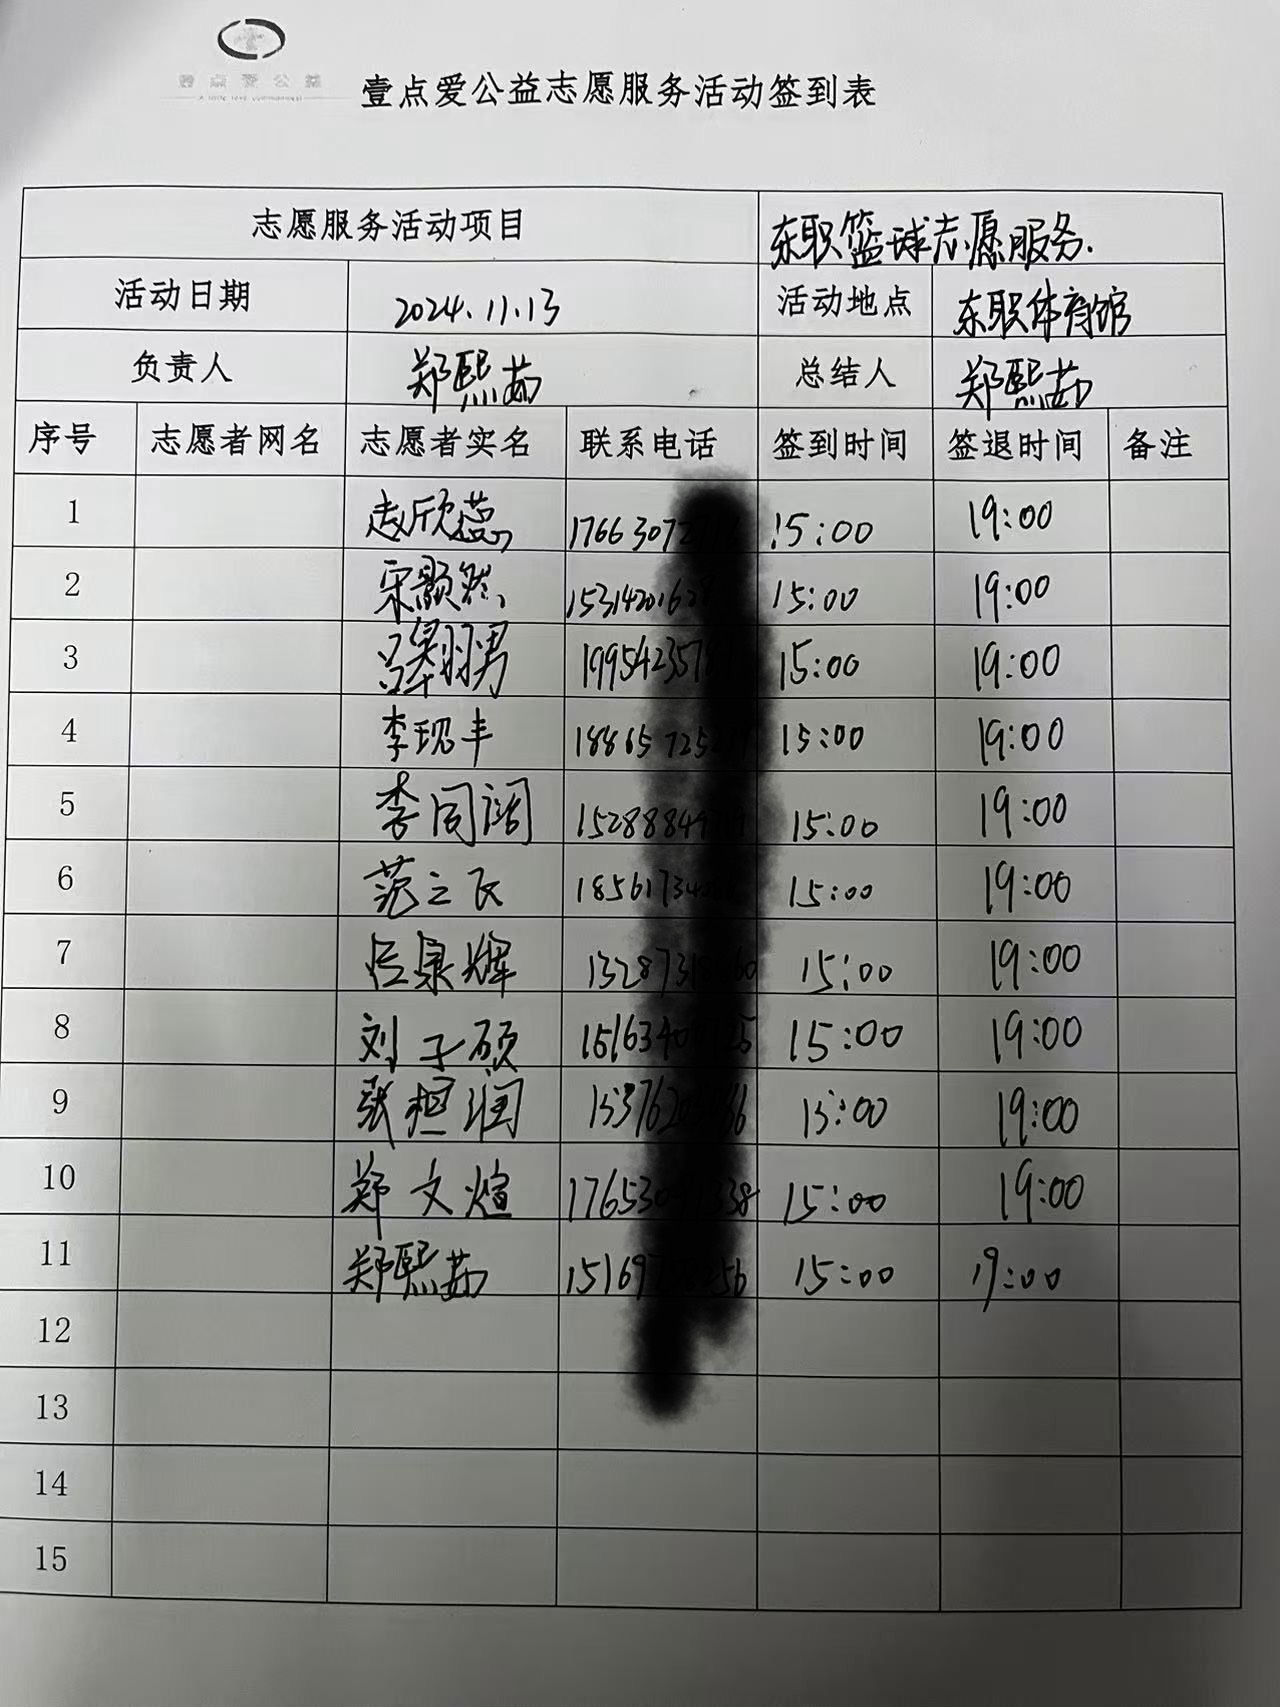 壹点爱公益
壹点爱公益志愿服务活动签到表
志愿服务活动项目 东职篮球志愿服务.
活动日期 2024.11.13 活动地点 东职体育馆
负责人 郑熙茹 总结人 郑熙茹
序号 志愿者网名 志愿者实名 联系电话 签到时间 签退时间 备注
1 赵欣蕊 15:00 19:00
2 宋颢然 15:00 19:00
3 翔男 15:00 19:00
4 李现丰 15:00 19:00
5 李同阔 15:00 19:00
6 范之飞 15:00 19:00
7 吕泉辉 15:00 19:00
8 刘子硕 15:00 19:00
9 张桓润 15:00 19:00
10 郑文煊 15:00 19:00
11 郑熙茹 15:00 19:00
12
13
14
15